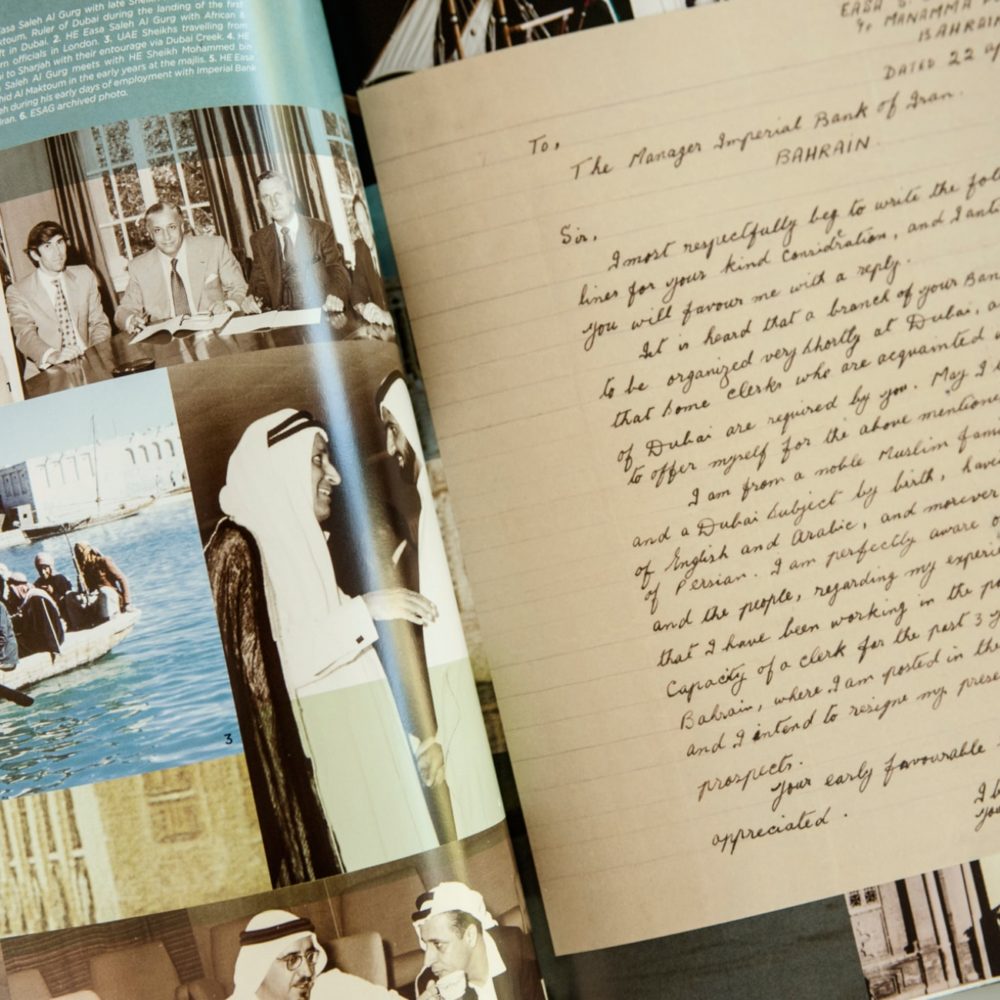 asa Saleh Al Gurg with late Sheikh
ktoum, Ruler of Dubai during the landing of the first
ft in Dubai. 2. HE Easa Saleh Al Gurg with African &
rn officials in London. 3. UAE Sheikhs travelling from
i to Sharjah with their entourage via Dubai Creek. 4. HE
Saleh Al Gurg meets with HE Sheikh Mohammed bin
hid Al Maktoum in the early years at the majlis. 5. HE Easa
eh during his early days of employment with Imperial Bank
ran. 6. ESAG archived photo.
1
3
EASA S.
MANAMMA
BAHRAIN
DATED 22
To,
The Manager Imperial Bank of Iran.
BAHRAIN.
Sir,
I most respectfully beg to write the foll
lines for your kind considration, and I anti
you will favour me with a reply.
It is heard that a branch of your Ban
to be organized very shortly at Dubai, a
that some clerks who are acquainted
of Dubai are required by you. May I
to offer myself for the above mentione
I am from a noble Muslim fam
and a Dubai subject by birth, havi
of English and Arabic, and morever
of Persian. I am perfectly aware o
and the people, regarding my experie
that I have been working in the p
capacity of a clerk for the past 3 y
Bahrain, where I am posted in the
and I intend to resigne my prese
prospects.
Your early favourable
appreciated.
I b
You